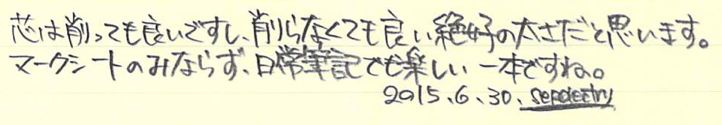 芯は削っても良いですし、削らなくても良い絶好の太さだと思います。
マークシートのみならず、日常筆記でも楽しい一本ですね。
2015.6.30.